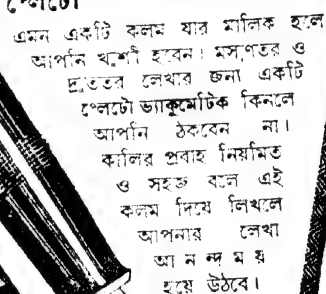 প্লেটো
এমন একটি কলম যার মালিক হলে
আপনি খুশী হবেন। মসৃণতর ও
দ্রুততর লেখার জন্য একটি
প্লেটো ভ্যাকুমেটিক কিনলে
আপনি ঠকবেন না।
কালির প্রবাহ নিয়মিত
ও সহজ বলে এই
কলম দিয়ে লিখলে
আপনার লেখা
আ ন ন্দ ম য়
হয়ে উঠবে।